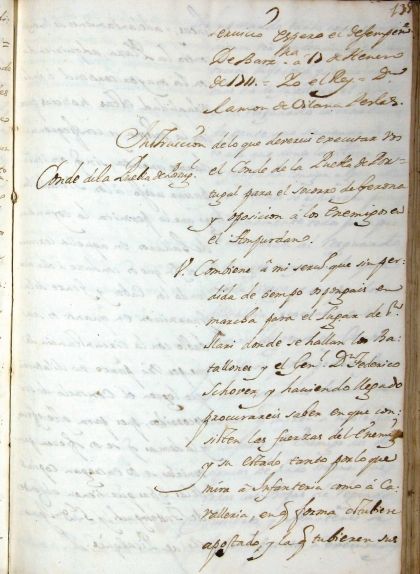 servicio espero el desempeño
De Barzna a 13 de Henero
de 1711 = Yo el Rey = Dn
Ramon de Vilana Perlas.
Instruccion de lo que devereis executar vos
Conde de la Puebla de Portugl
el Conde de la Puebla de Por-
tugal para el socorro de Gerona
y oposicion a los Enemigos en
el Ampurdan.
Combiene à mi servicio que sin per-
dida de tiempo os pongais en
marcha para el lugar de
Ilari donde se hallan los Ba-
tallones y el Genl Dn Federico
Schover, y haviendo llegado
procurareis saber en que con-
sisten las fuerzas del Enemigo
y su estado, tanto por lo que
mira à Infanteria como à Ca-
valleria, en q forma estubiere
apostado, y la q tubieren sus